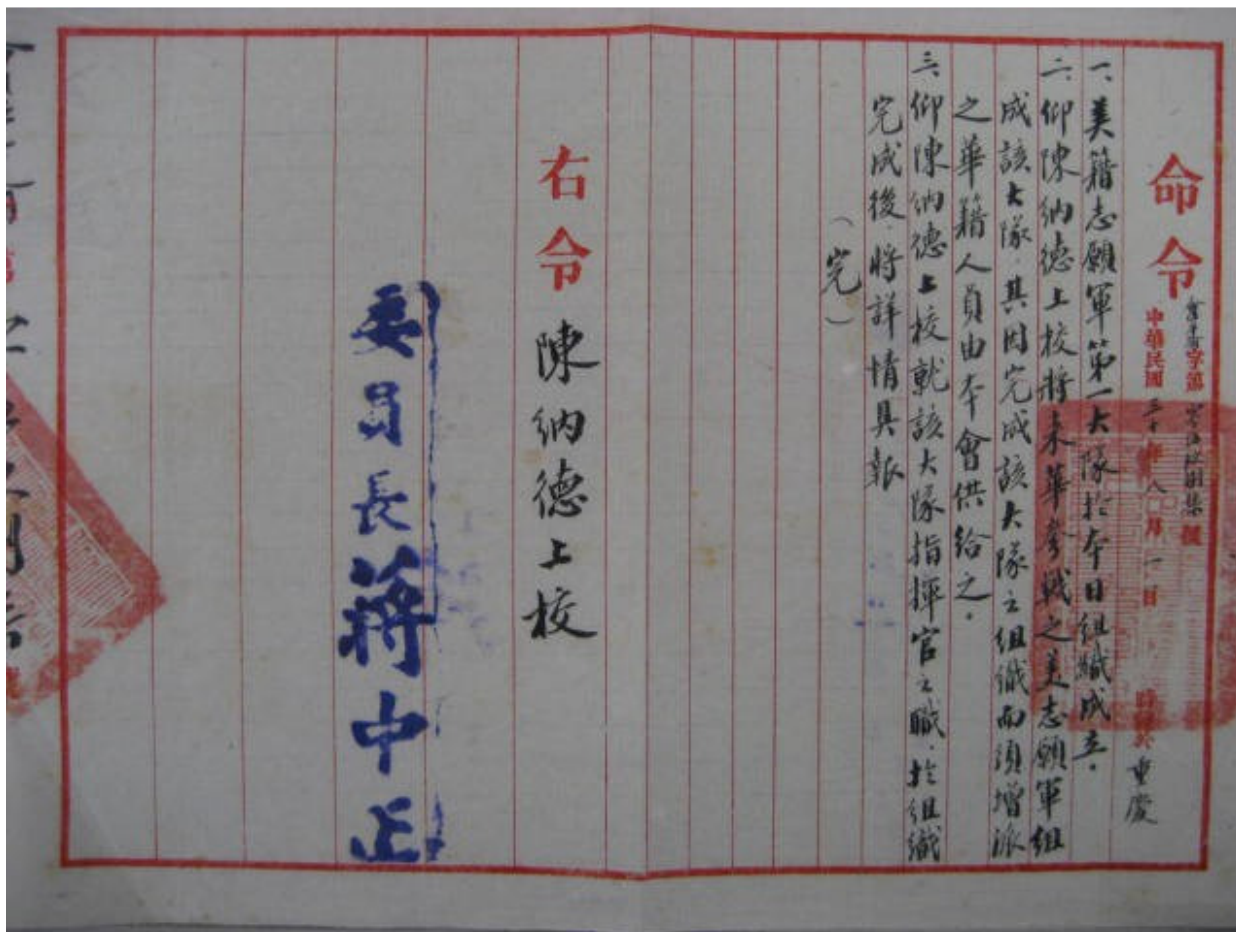 命令
字第 號
中華民國三十年八月一日
重慶
一、美籍志願軍第一大隊於本日組織成立。
二、仰陳納德上校將來華參戰之美志願軍組
成該大隊、其因完成該大隊之組織而須增派
之華籍人員由本會供給之。
三、仰陳納德上校就該大隊指揮官之職、於組織
完成後、將詳情具報
(完)
右令陳納德上校
委員長蔣中正